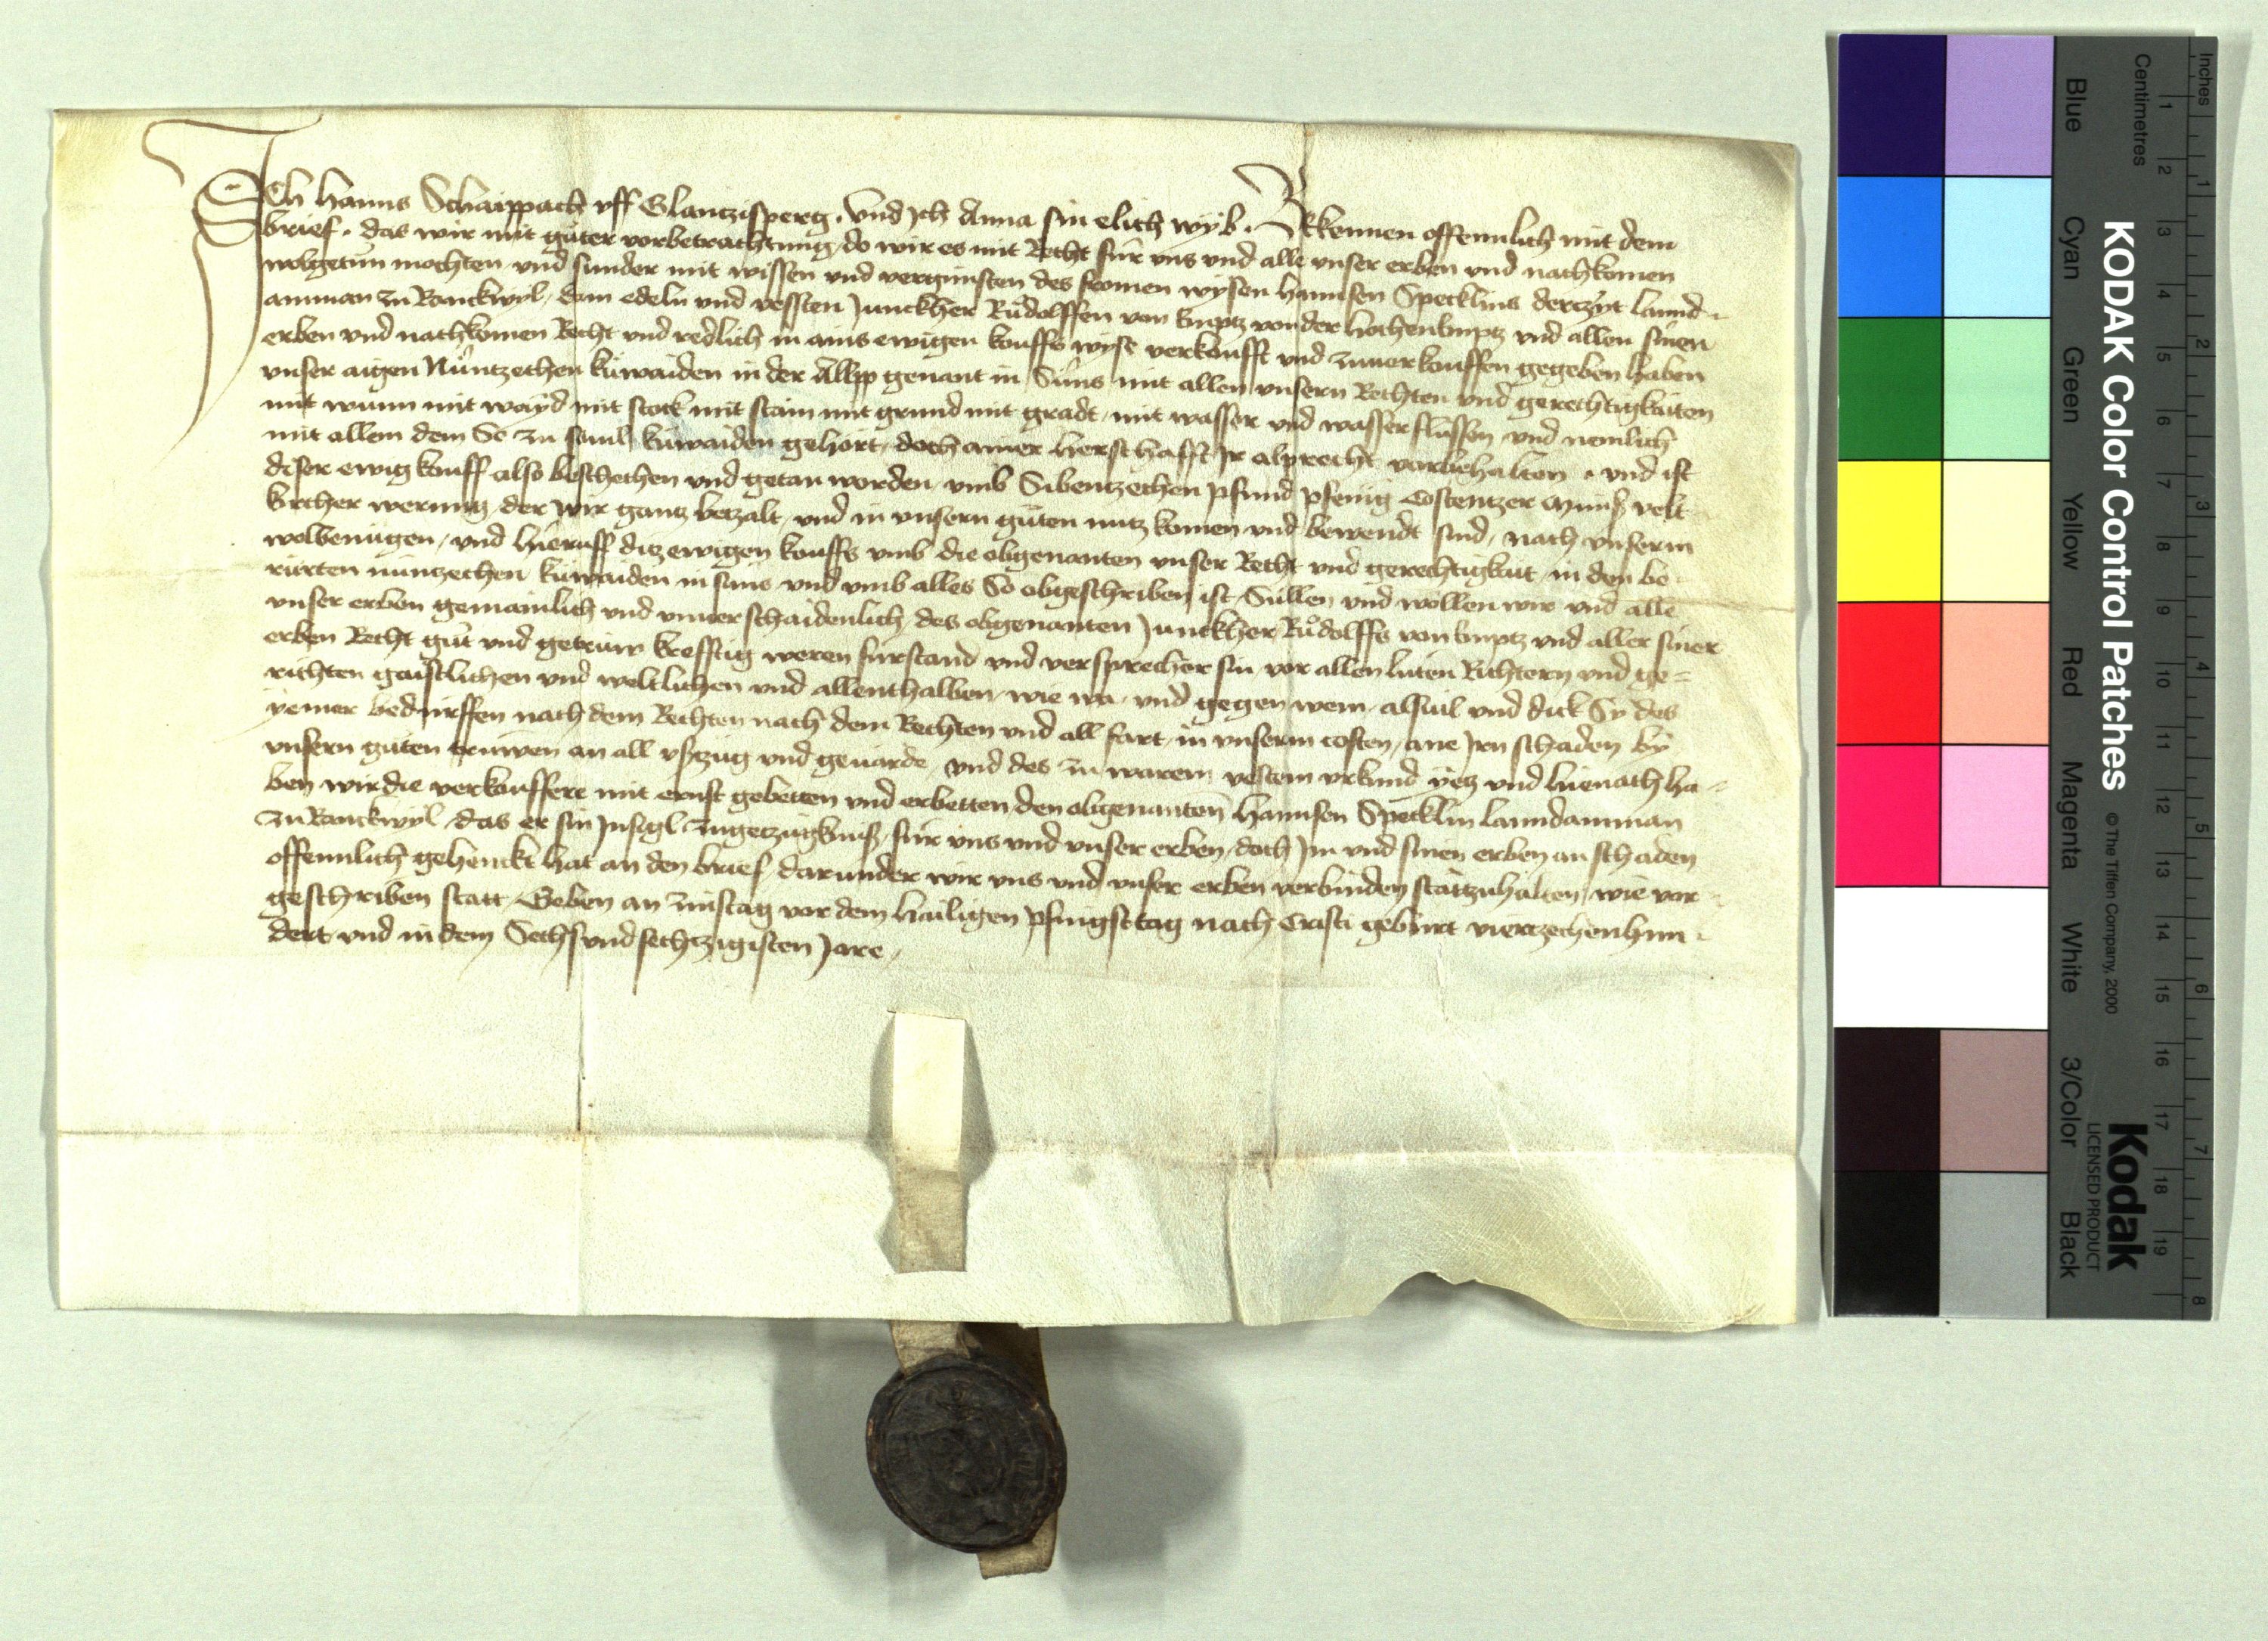 Ich Hanns Schaippach vff Glantzisperg. Vnd Ich Anna sin elich wyb. Bekennen offennlich mit dem
brief. das wir mit guter vorbetrachtung do wir es mit Recht für vns vnd alle vnser erben vnd nachkomen
wolgetun mochten vnd sunder mit wissen vnd vergunsten des fromen wysen Hannsen Specklins derczyt lannd-
amman zu Ranckwyl, dem edeln vnd vessten Junckher Růdolffen von Emptz von der hochenemptz vnd allen sinen
erben vnd nachkomen Recht vnd redlich in ains ewigen kouffs wyse verkoufft vnd zuuerkouffen gegeben haben
vnser aigen Nüntzechen küwaiden in der Allpp genant in Süns mit allen vnsern Rechten vnd gerechtigkaiten
mit wunn mit wayd mit stock mit stain mit grund mit gradt, mit wasser vnd wasserflüssen vnd nemlich
mit allem dem So zu sölich küwaiden gehört, doch ainer herschafft Ir alprecht vorbehalten. vnd ist
diser ewig kouff also beschechen vnd getan worden vmb Sibentzechen pfund pfenig Costentzer Müntz velt
kircher werung, der wir gantz betzalt, vnd in vnsern guten nutz komen vnd bewendt sind, nach vnserm
wolbenügen, vnd hieruff ditz ewigen kouffs vmb die obgenanten vnser Recht vnd gerechtigkait, in den be-
rürten nüntzechen küwaiden in süns vnd vmb alles So obgeschriben ist Süllen vnd wöllen wir vnd alle
vnser erben gemainlich vnd vnuerschaidenlich des obgenanten Junckher Růdolffs von Emptz vnd aller siner
erben Recht gut vnd getrüw krefftig weren fürstand vnd versprecher sin vor allen lüten Richtern vnd ge=
richten gaistlichen vnd weltlichen vnd allenthalben, wie wa, vnd gegen wem, alsuil vnd dick Sy des
yemer bedürffen nach dem Rechten nach dem Rechten vnd all fart, in vnserm costen, ane Irn schaden by
vnsern guten trüwen an all vfzüg vnd geuärde, vnd des zu warem vestem vrkund yetz vnd hienach ha-
ben wir die verkouffere mit ernst gebetten vnd erbetten den obgenanten Hannsen Specklin lanndamman
zu Ranckwyl, das er sin Insigl zugetzügknisz, für vns vnd vnser erben, doch Im vnd sinen erben an schaden
offennlich gehenckt hat an den brief, darunder wir vns vnd vnser erben verbinden stättzuhalten, wie vor
geschriben statt, Geben an zinstag vor dem hailigen pfingsttag nach Cristi gebürt viertzechenhun-
dert vnd in dem Sechsvndsechtzigisten Jare,
KODAK Color Control Patches © The Tiffen Company, 2000
Kodak
LICENSED PRODUCT
Inches 1 2 3 4 5 6 7 8
Centimetres 1 2 3 4 5 6 7 8 9 10 11 12 13 14 15 16 17 18 19
Blue Cyan Green Yellow Red Magenta White 3/Color Black